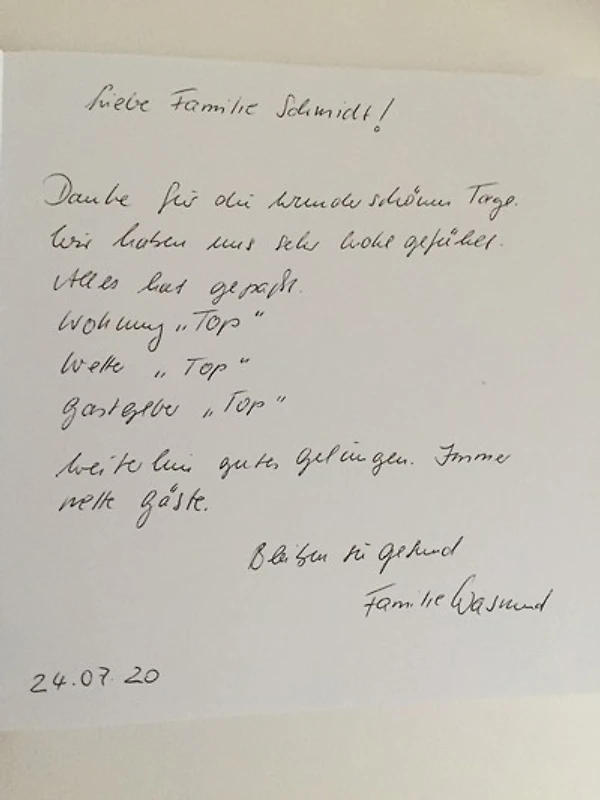 Liebe Familie Schmidt!
Danke für die wunderschönen Tage.
Wir haben uns sehr wohl gefühlt.
Alles hat gepaßt.
Wohnung „Top“
Wetter „Top“
Gastgeber „Top“
Weiterhin gutes Gelingen. Immer
nette Gäste.
Bleiben Sie gesund
Familie Wasmund
24.07.20